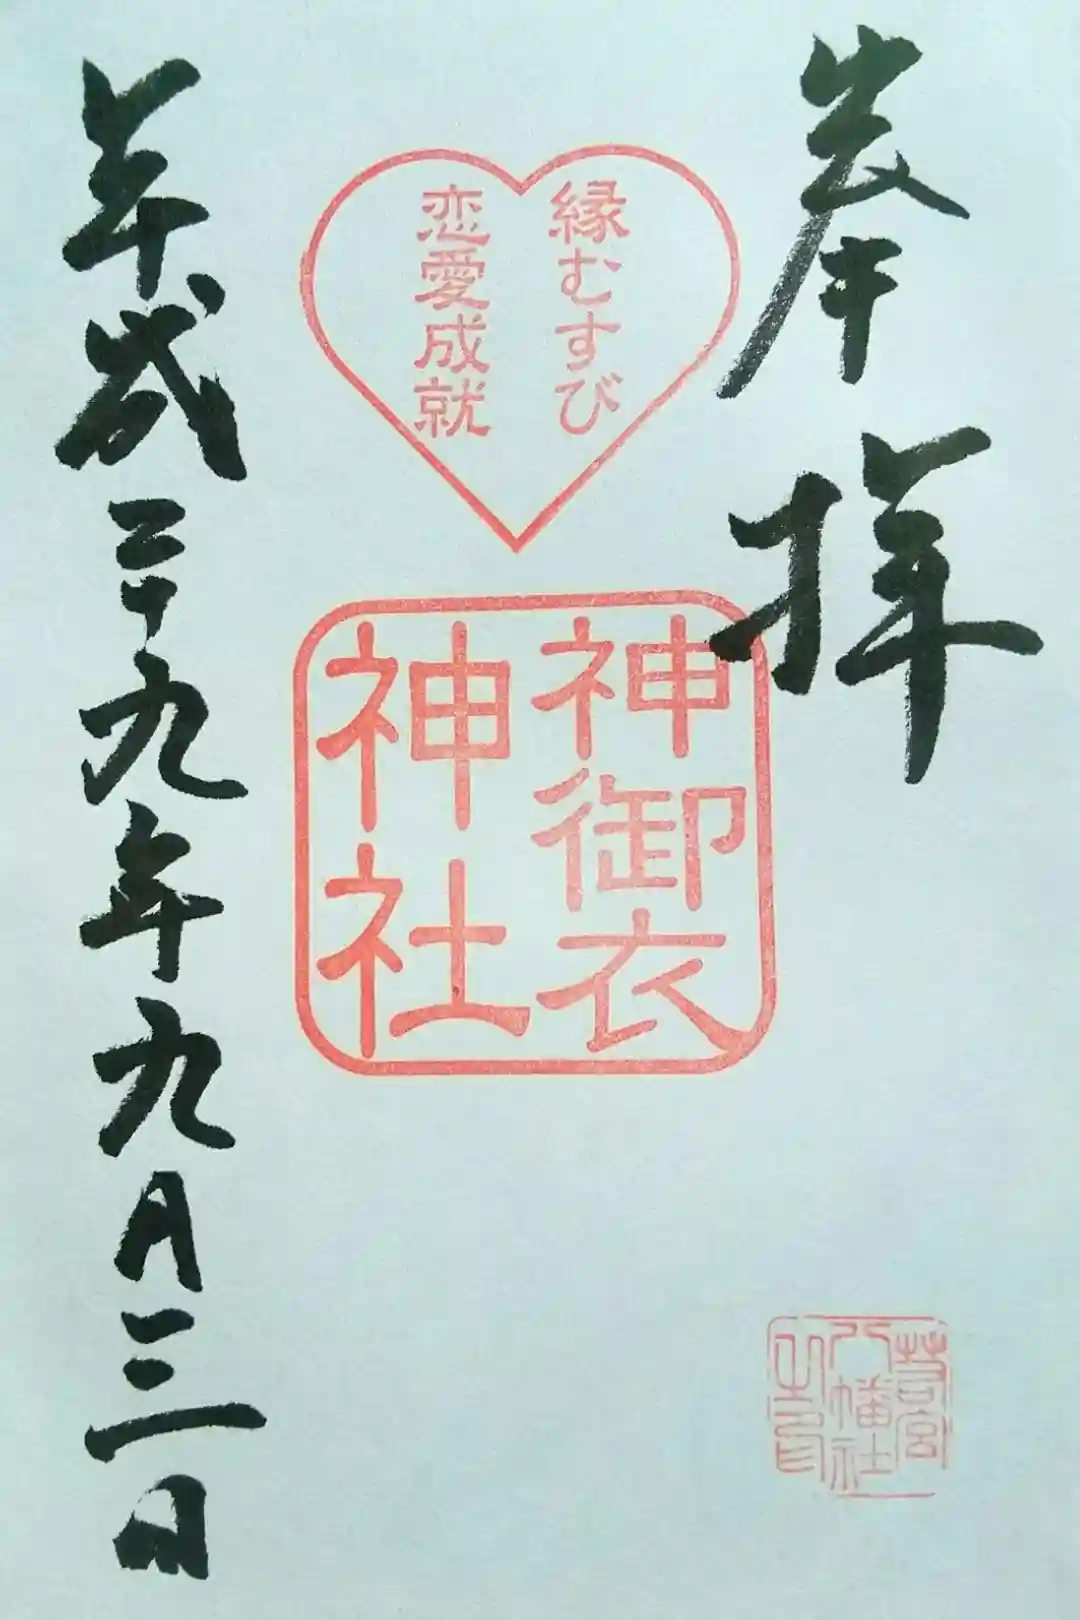 奉拝
縁むすび
恋愛成就
神御衣
神社
若宮
八幡社
之印
平成二十九年九月三日